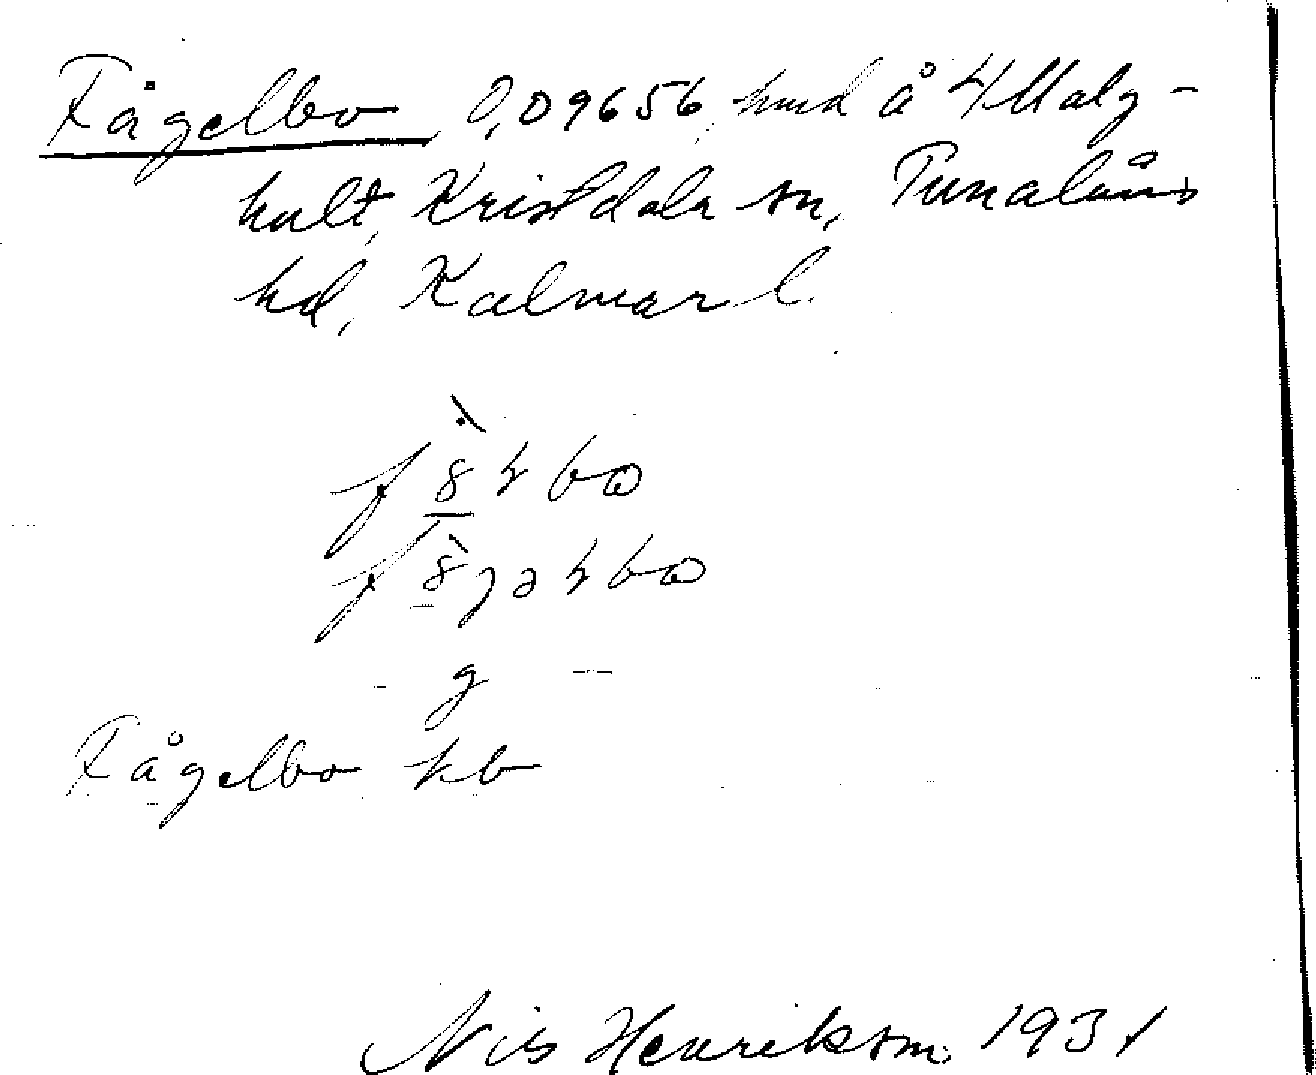 Fågelbo, 0,09656 hmd å 4 Malg-
hult, Kristdala sn, Tunaläns
hd, Kalmar l.
g
Fågelbo kb
Nils Henriksson 1931